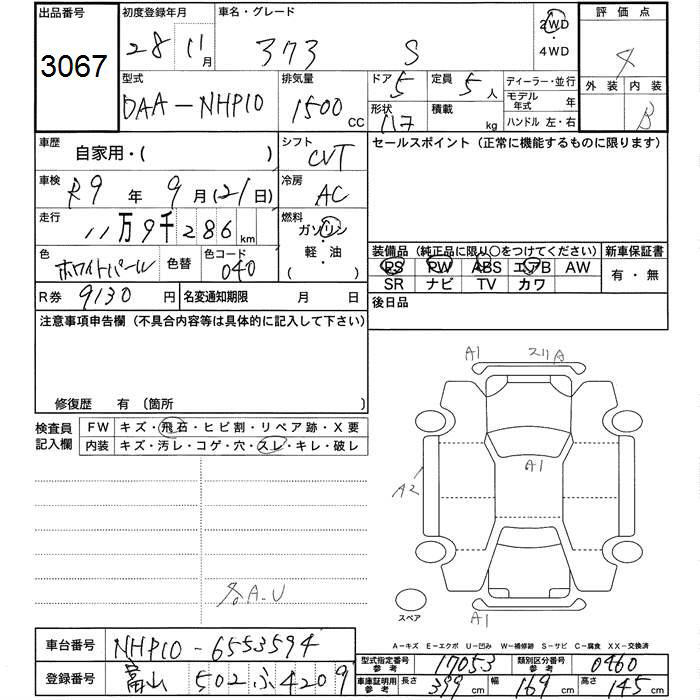 出品番号 初度登録年月 車名・グレード 2WD 評価点
3067 28 11月 373 S ・4WD 4
型式 排気量 ドア 5 定員 5人 ディーラー・並行 外装 内装
DAA-NHP10 1500cc 形状 117 積載 kg モデル年式 年 B
ハンドル 左・右
車歴 自家用・( ) シフト CVT セールスポイント (正常に機能するものに限ります)
車検 R9年 9月(21日) 冷房 AC
走行 11万9千286km 燃料 ガソリン
軽・油
( )
色 ホワイトパール 色替 色コード 040
装備品 (純正品に限り○をつけてください) 新車保証書
PS PW ABS エアB AW 有・無
SR ナビ TV カワ
R券 9130円 名変通知期限 月 日 後日品
注意事項申告欄 (不具合内容等は具体的に記入して下さい)
修復歴 有 (箇所 )
検査員記入欄 FW キズ・飛石・ヒビ割・リペア跡・X要
内装 キズ・汚レ・コゲ・穴・スレ・キレ・破レ
A1 スリA
A1
A2
A.U
A1
スペア
A-キズ E-エクボ U-凹み W-補修跡 S-サビ C-腐食 XX-交換済
車台番号 NHP10-6553594
型式指定番号 参考 17053 類別区分番号 参考 0460
登録番号 富山 502 ふ 4209
車庫証明用 参考 長さ 399cm 幅 169cm 高さ 145cm